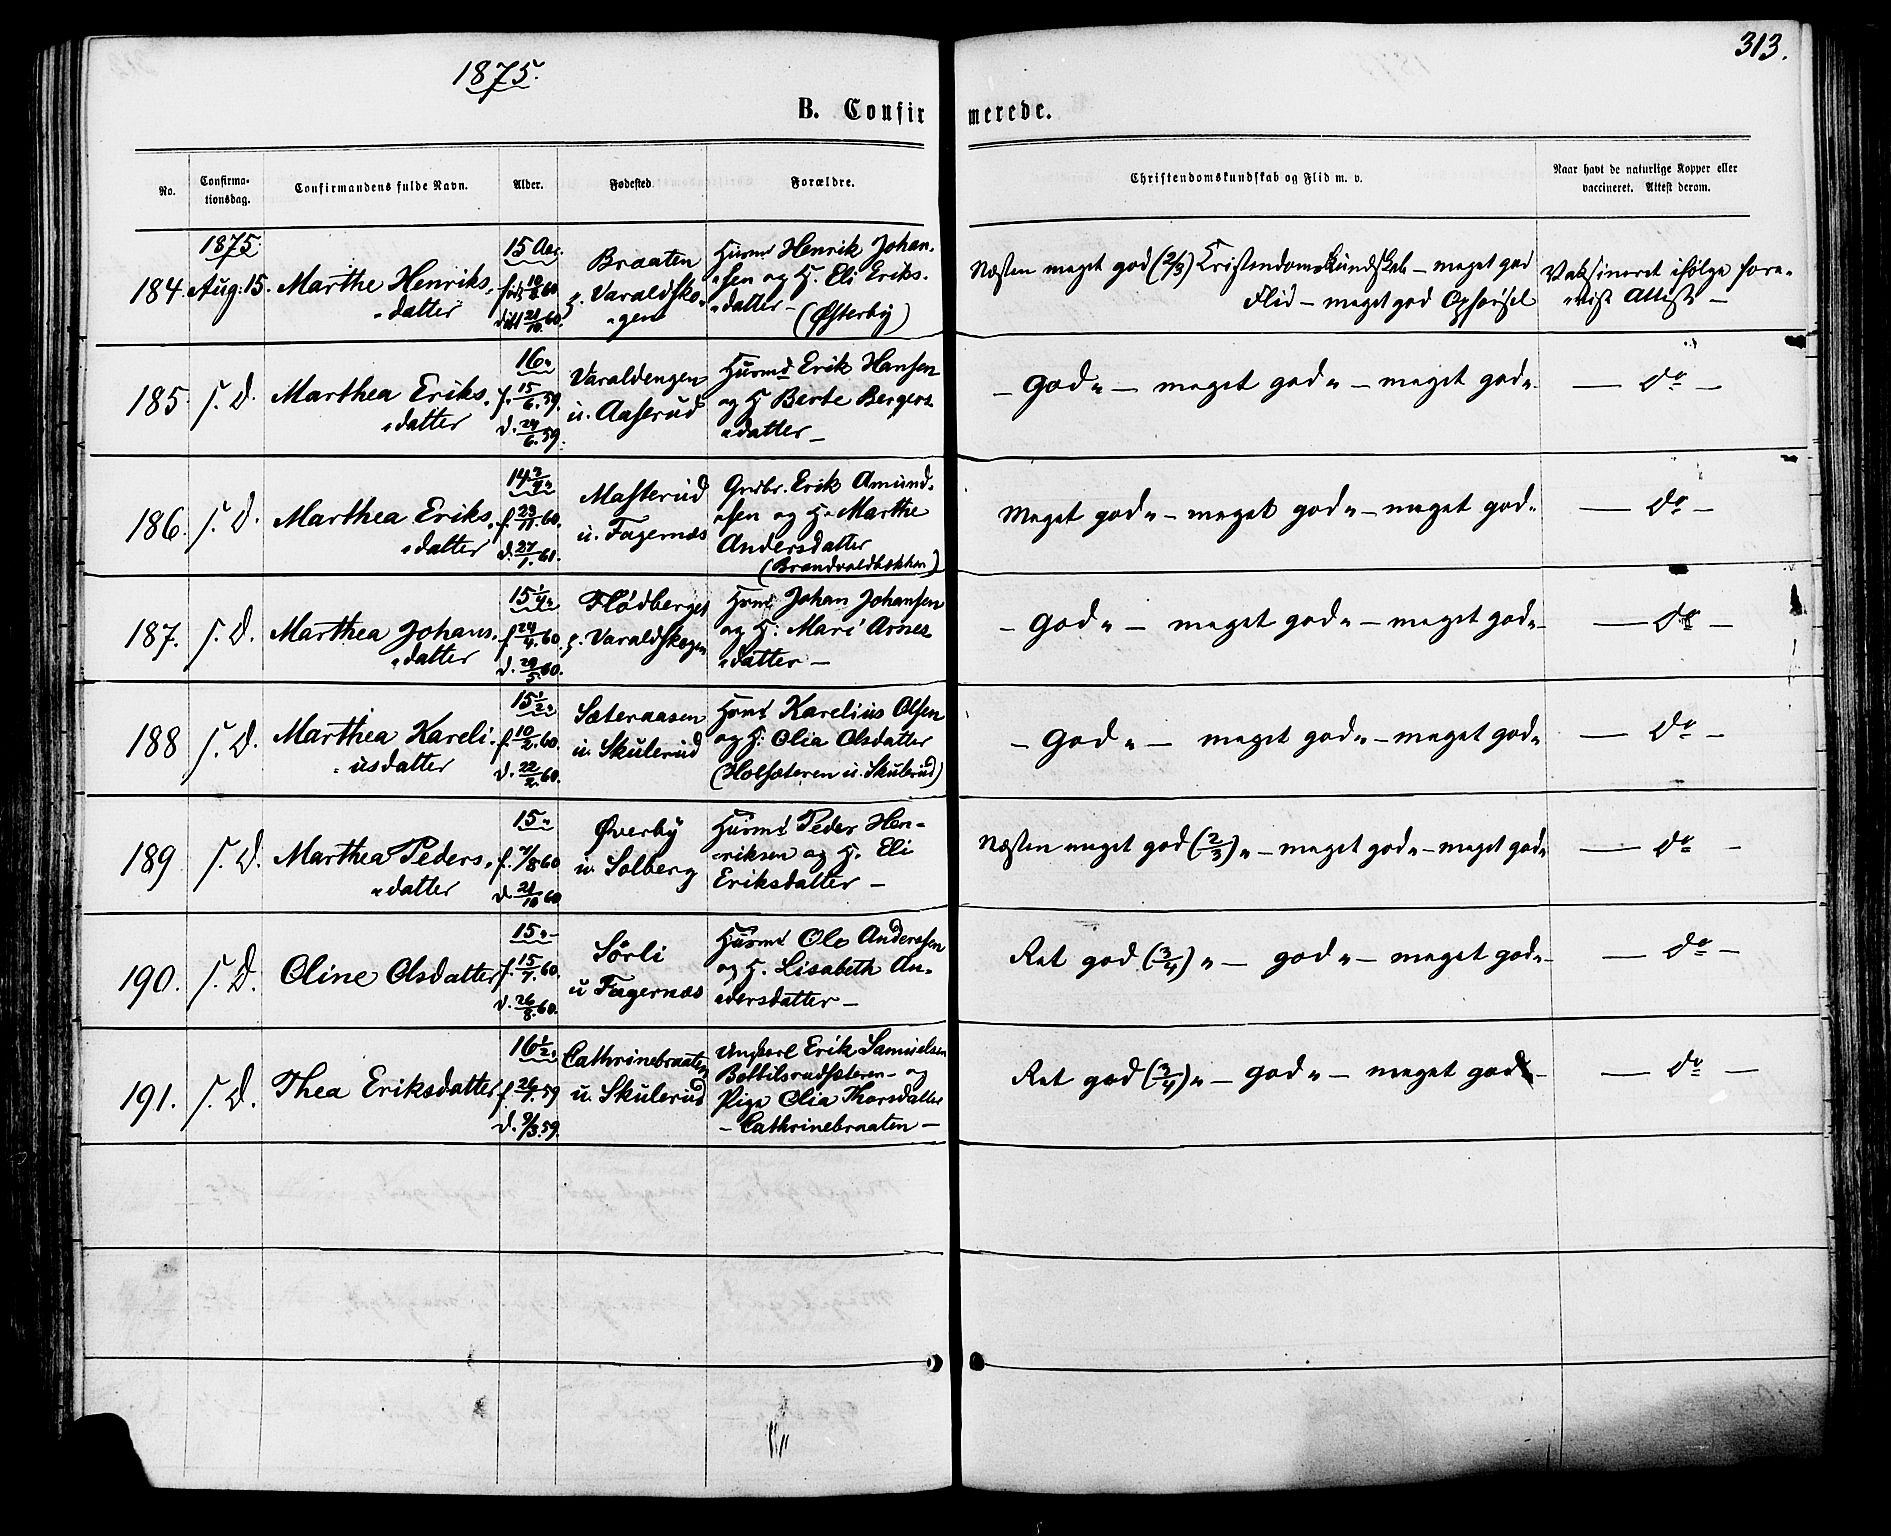 1875.
313.
B. Confirmerede.
No.
Confirma-
tionsdag.
Confirmandens fulde Navn.
Alder.
Fødested.
Forældre.
Christendomskundskab og Flid m. v.
Naar havt de naturlige Kopper eller
vaccineret. Attest derom.
1875.
184. Aug: 15. Marthe Henriks-
datter
15 Aar.
Braaten
p. Varaldsko-
gen
Husmd Henrik Johan-
sen og H. Eli Eriks-
datter - (Østerby)
Næsten meget god (2/3) Kristendomskundskab - meget god
Flid - meget god Opførsel
Vaksineret ifølge fore-
vist Attest -
185 S. D. Marthea Eriks-
datter
16
f. 15/6 59.
d. 24/6 59.
Varaldengen
u. Aaserud
Husmd Erik Hansen
og H Berte Bergers-
datter -
- God " - meget god " - meget god "
- do -
186. S. D. Marthea Eriks-
datter
f. 23/11 60.
d. 27/1 61.
Masterud
u. Fagernæs
Grdbr. Erik Amund-
sen og H. Marthe
Andersdatter
(Brandvoldbakken)
Meget god " - meget god " - meget god "
- do -
187. S. D. Marthea Johans-
datter
15 1/4
f. 24/4 60.
d. 29/5 60.
Flödberget
p. Varaldskogen
Hsmd Johan Johansen
og H: Mari Arnes-
datter -
- God " - meget god " - meget god "
- do -
188 S. D. Marthea Kareli-
usdatter
15 1/2
f. 10/2 60.
d. 22/2 60.
Sæteraasen
u. Skulerud
Hsmd Karelius Olsen
og H: Olia Olsdatter
(Holsæteren u. Skulerud)
- God " - meget god " - meget god "
- do -
189 S. D. Marthea Peders-
datter
15
f. 7/8 60
d. 21/10 60
Øverby
u. Solberg
Husmd Peder Hen-
riksen og H. Eli
Eriksdatter -
Næsten meget god (2/3) " - meget god " - meget god "
- do -
190. S. D. Oline Olsdatter
15
f. 15/7 60.
d. 26/8 60.
Sörli
u Fagernæs
Husmd Ole Anderssen
og H. Lisabeth An-
dersdatter -
Ret god (3/4) " - god " - meget god "
- do -
191. S. D. Thea Eriksdatter
16 1/2
f. 26/1 59
d. 9/3 59.
Cathrinebraaten
u. Skulerud
Ungkarl Erik Samuelsen
Bottilsrudsæteren - og
Pige Olia Thorsdatter
- Cathrinebraaten -
Ret god (3/4) " - god " - meget god -
- do -